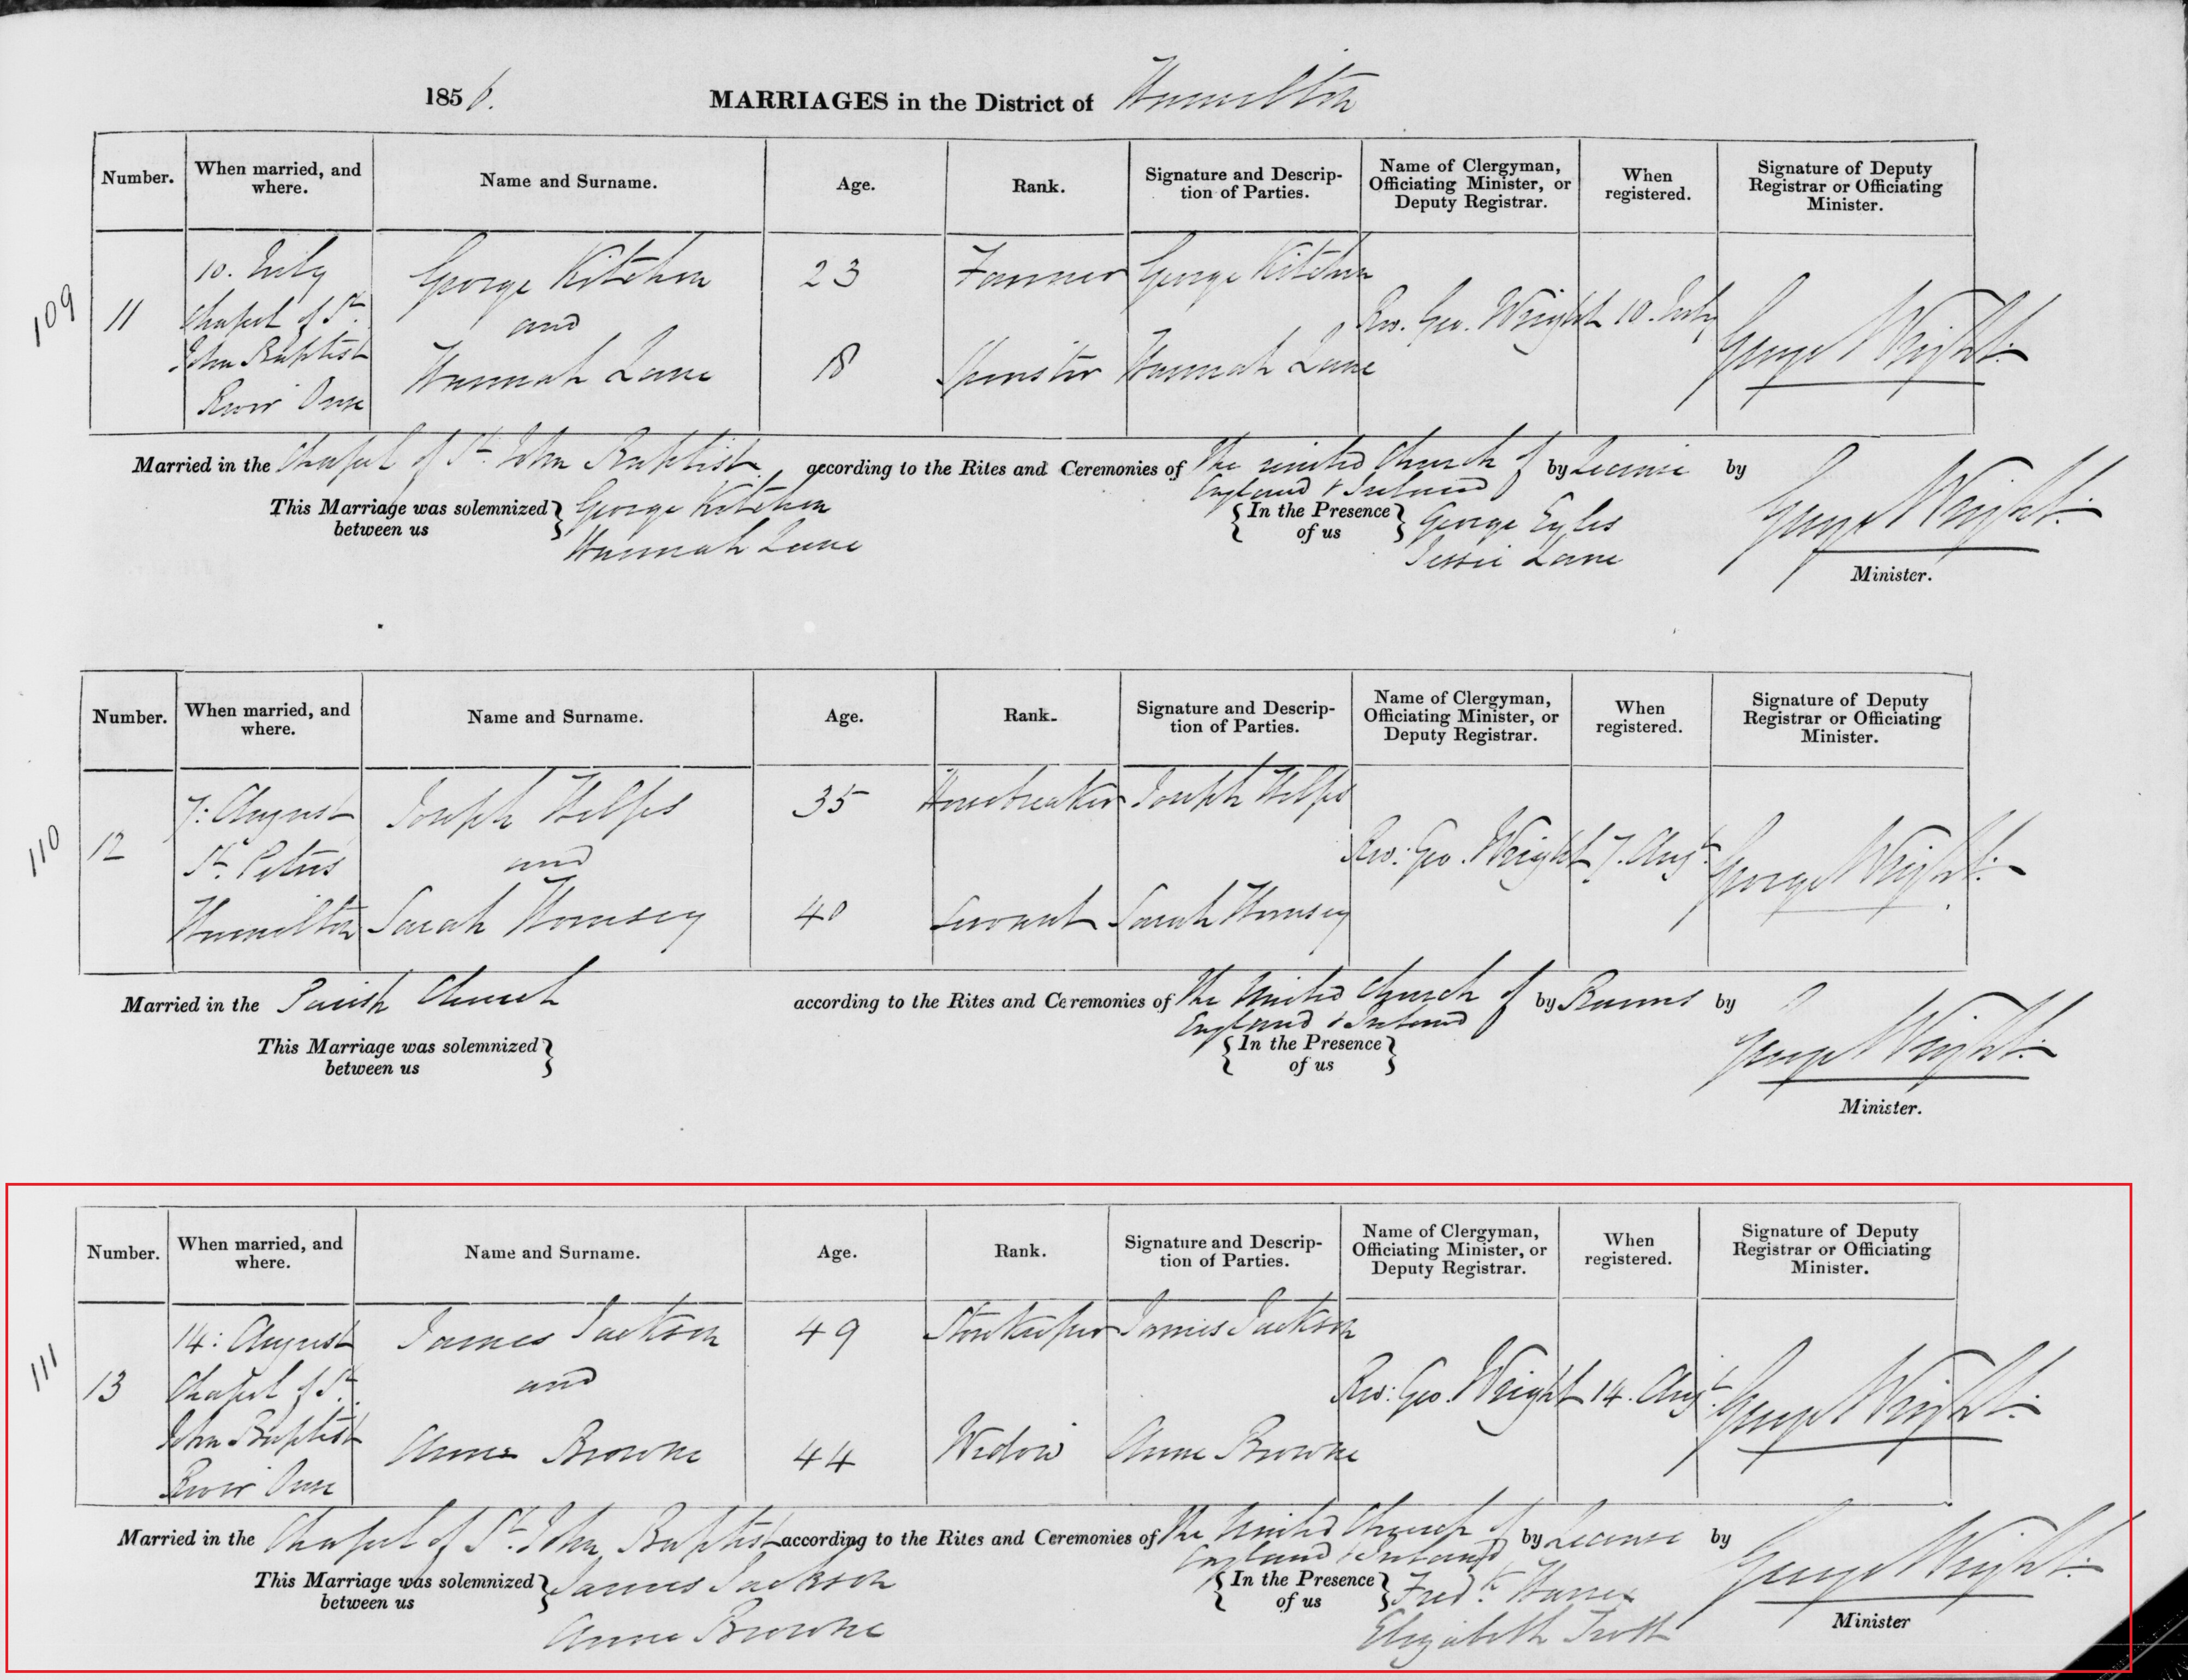 1856. MARRIAGES in the District of Hamilton
Number. When married, and where. Name and Surname. Age. Rank. Signature and Description of Parties. Name of Clergyman, Officiating Minister, or Deputy Registrar. When registered. Signature of Deputy Registrar or Officiating Minister.
10. July George Kitchen 23 Farmer George Kitchen
109 11 Chapel of St. and Rev. Geo. Wright 10. July George Wright
John Baptist Hannah Lane 18 Spinster Hannah Lane
River Ouse
Married in the Chapel of St. John Baptist, according to the Rites and Ceremonies of the United Church of England & Ireland by License by
This Marriage was solemnized between us George Kitchen In the Presence of us George Eyles George Wright
Hannah Lane Jessie Lane
Minister.
Number. When married, and where. Name and Surname. Age. Rank. Signature and Description of Parties. Name of Clergyman, Officiating Minister, or Deputy Registrar. When registered. Signature of Deputy Registrar or Officiating Minister.
7: August Joseph 35 Horsebreaker Joseph
110 12 St. Peters and Rev: Geo. Wright 7. Augt. George Wright
Hamilton Sarah Hornsey 40 Servant Sarah Hornsey
Married in the Parish Church according to the Rites and Ceremonies of the United Church of England & Ireland by Banns by
This Marriage was solemnized between us In the Presence of us George Wright
Minister.
Number. When married, and where. Name and Surname. Age. Rank. Signature and Description of Parties. Name of Clergyman, Officiating Minister, or Deputy Registrar. When registered. Signature of Deputy Registrar or Officiating Minister.
14: August James Jackson 49 Storekeeper James Jackson
111 13 Chapel of St. and Rev: Geo. Wright 14. Augt. George Wright
John Baptist Anne Browne 44 Widow Anne Browne
River Ouse
Married in the Chapel of St. John Baptist according to the Rites and Ceremonies of the United Church of England & Ireland by License by
This Marriage was solemnized between us James Jackson In the Presence of us Fredk. George Wright
Anne Browne Elizabeth Trott
Minister